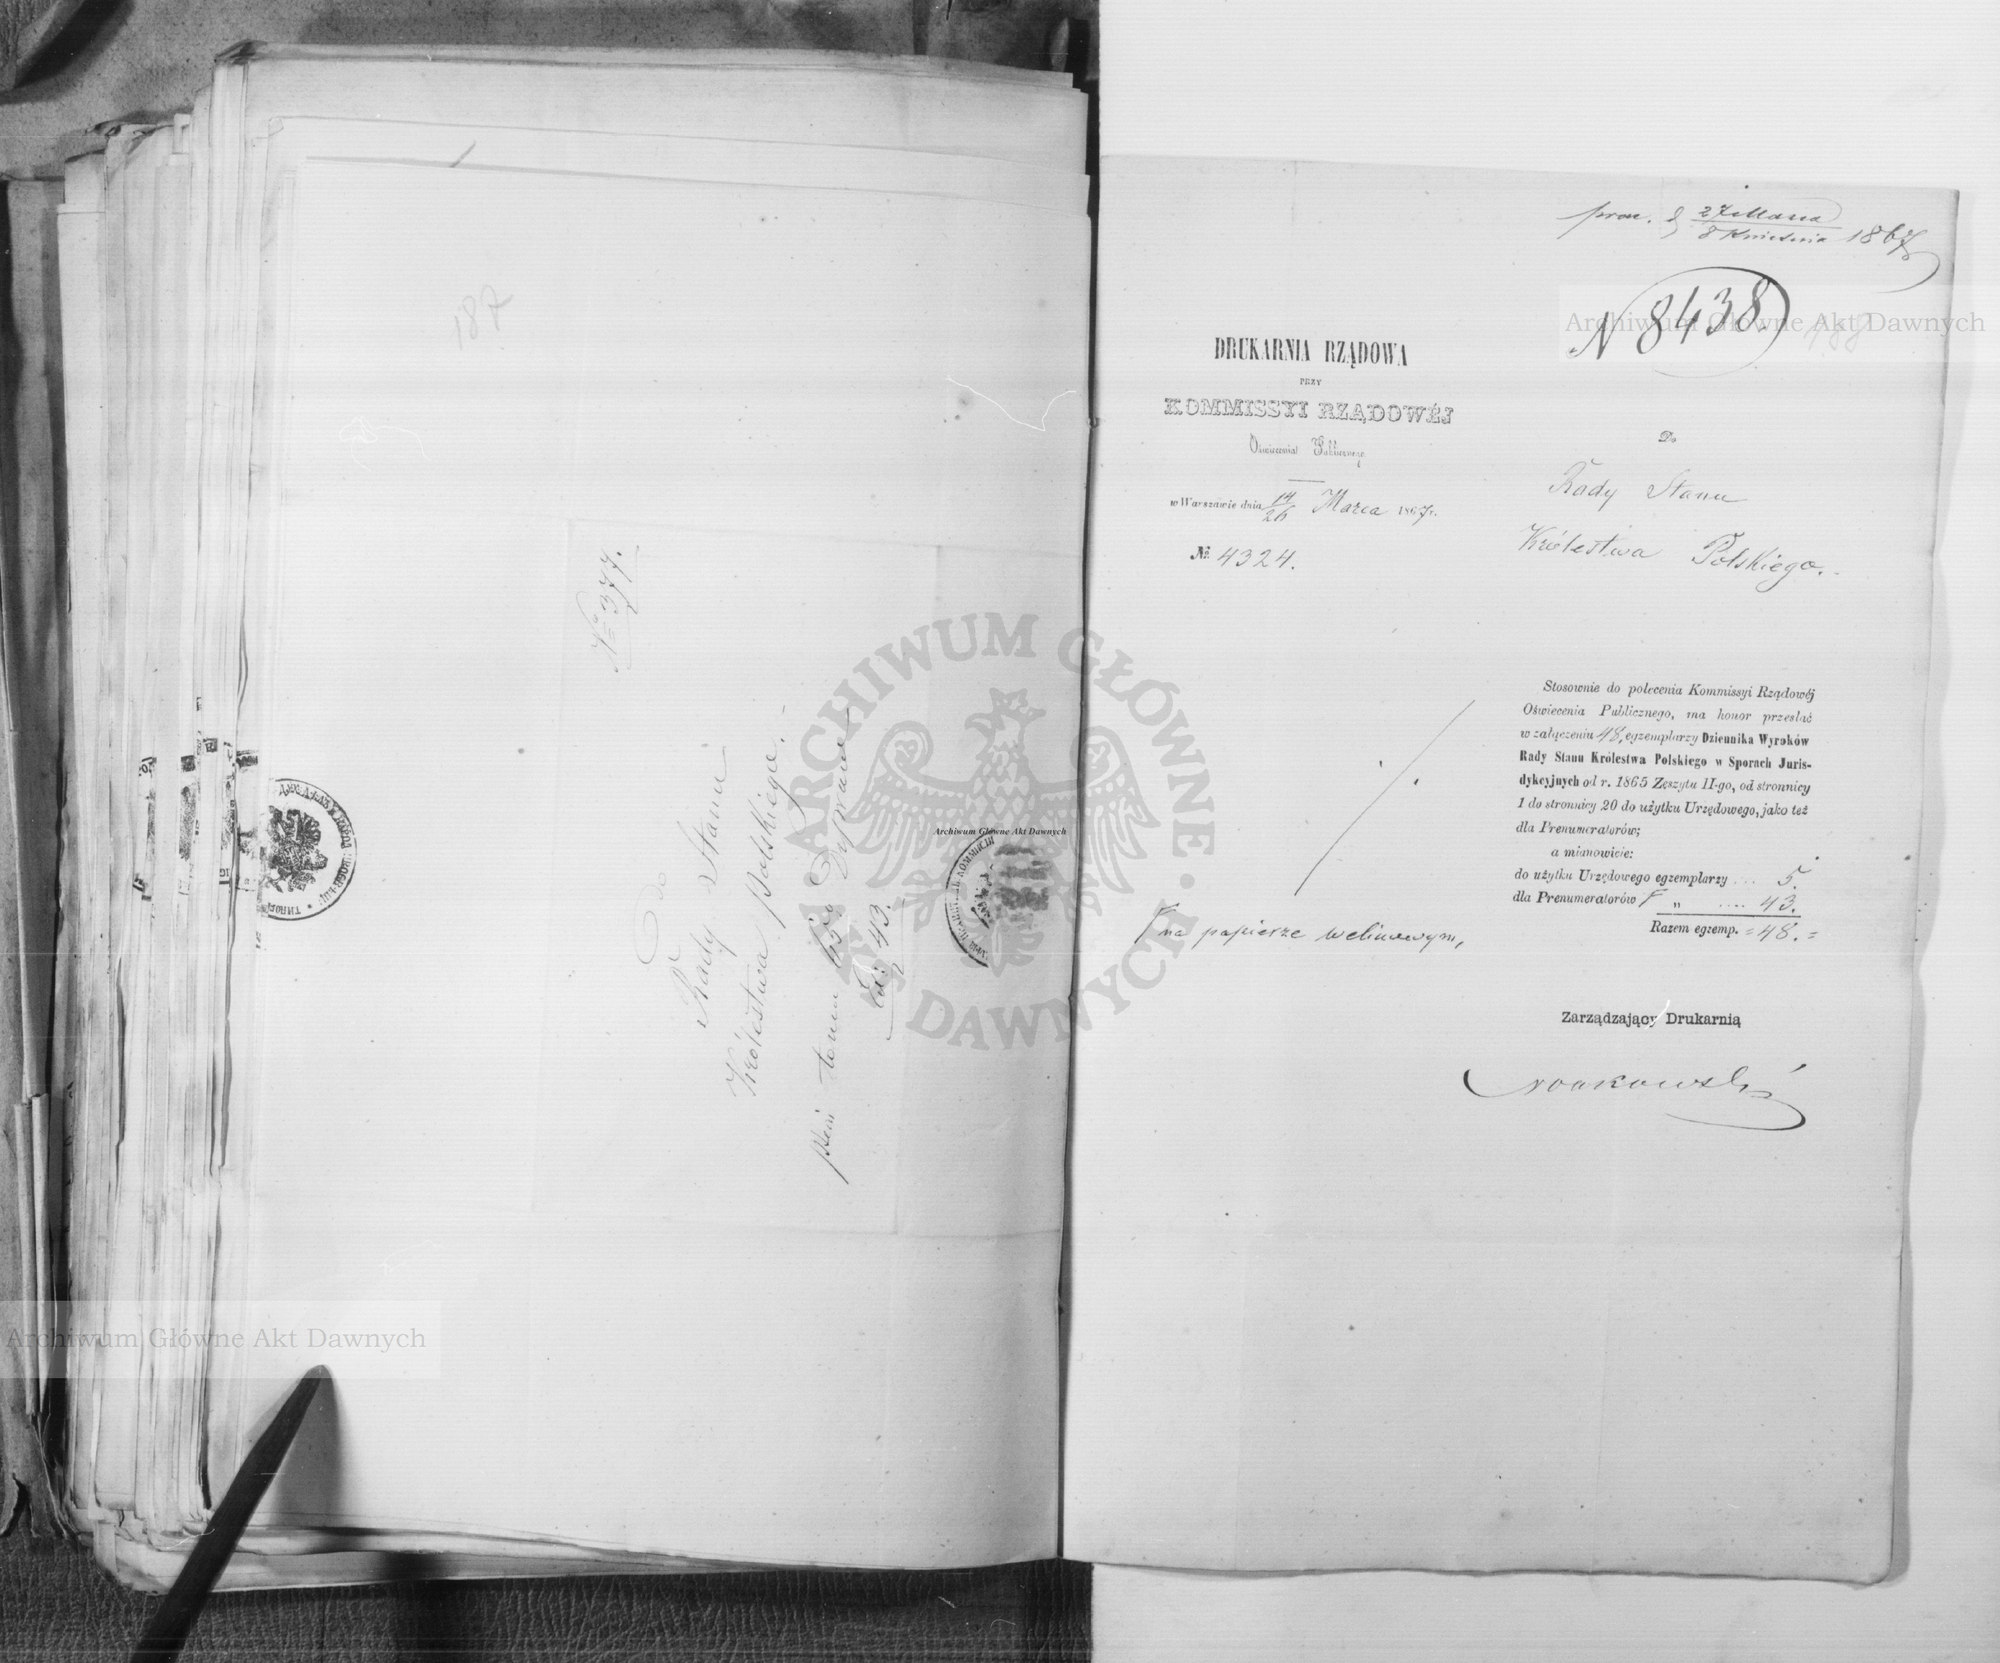 187
№ 377.
Do
Rady Stanu
Królestwa Polskiego.
Ex: 43.
prez. d 27 Marca / 8 Kwietnia 1867
N 8438
188
DRUKARNIA RZĄDOWA
PRZY
KOMMISSYI RZĄDOWÉJ
Oświecenia Publicznego
w Warszawie dnia 14/26 Marca 1867 r.
№ 4324.
Do
Rady Stanu
Królestwa Polskiego.
Stosownie do polecenia Kommissyi Rządowéj
Oświecenia Publicznego, ma honor przesłać
w załączeniu 48, egzemplarzy Dziennika Wyroków
Rady Stanu Królestwa Polskiego w Sporach Juris-
dykcyjnych od r. 1865 Zeszytu II-go, od stronnicy
1 do stronnicy 20 do użytku Urzędowego, jako też
dla Prenumeratorów;
a mianowicie:
do użytku Urzędowego egzemplarzy .... 5.
dla Prenumeratorów F „ .... 43.
Razem egzemp. = 48. =
F na papierze welinowym,
Zarządzający Drukarnią
Archiwum Główne Akt Dawnych
Archiwum Główne Akt Dawnych
Archiwum Główne Akt Dawnych
ARCHIWUM GŁÓWNE AKT DAWNYCH